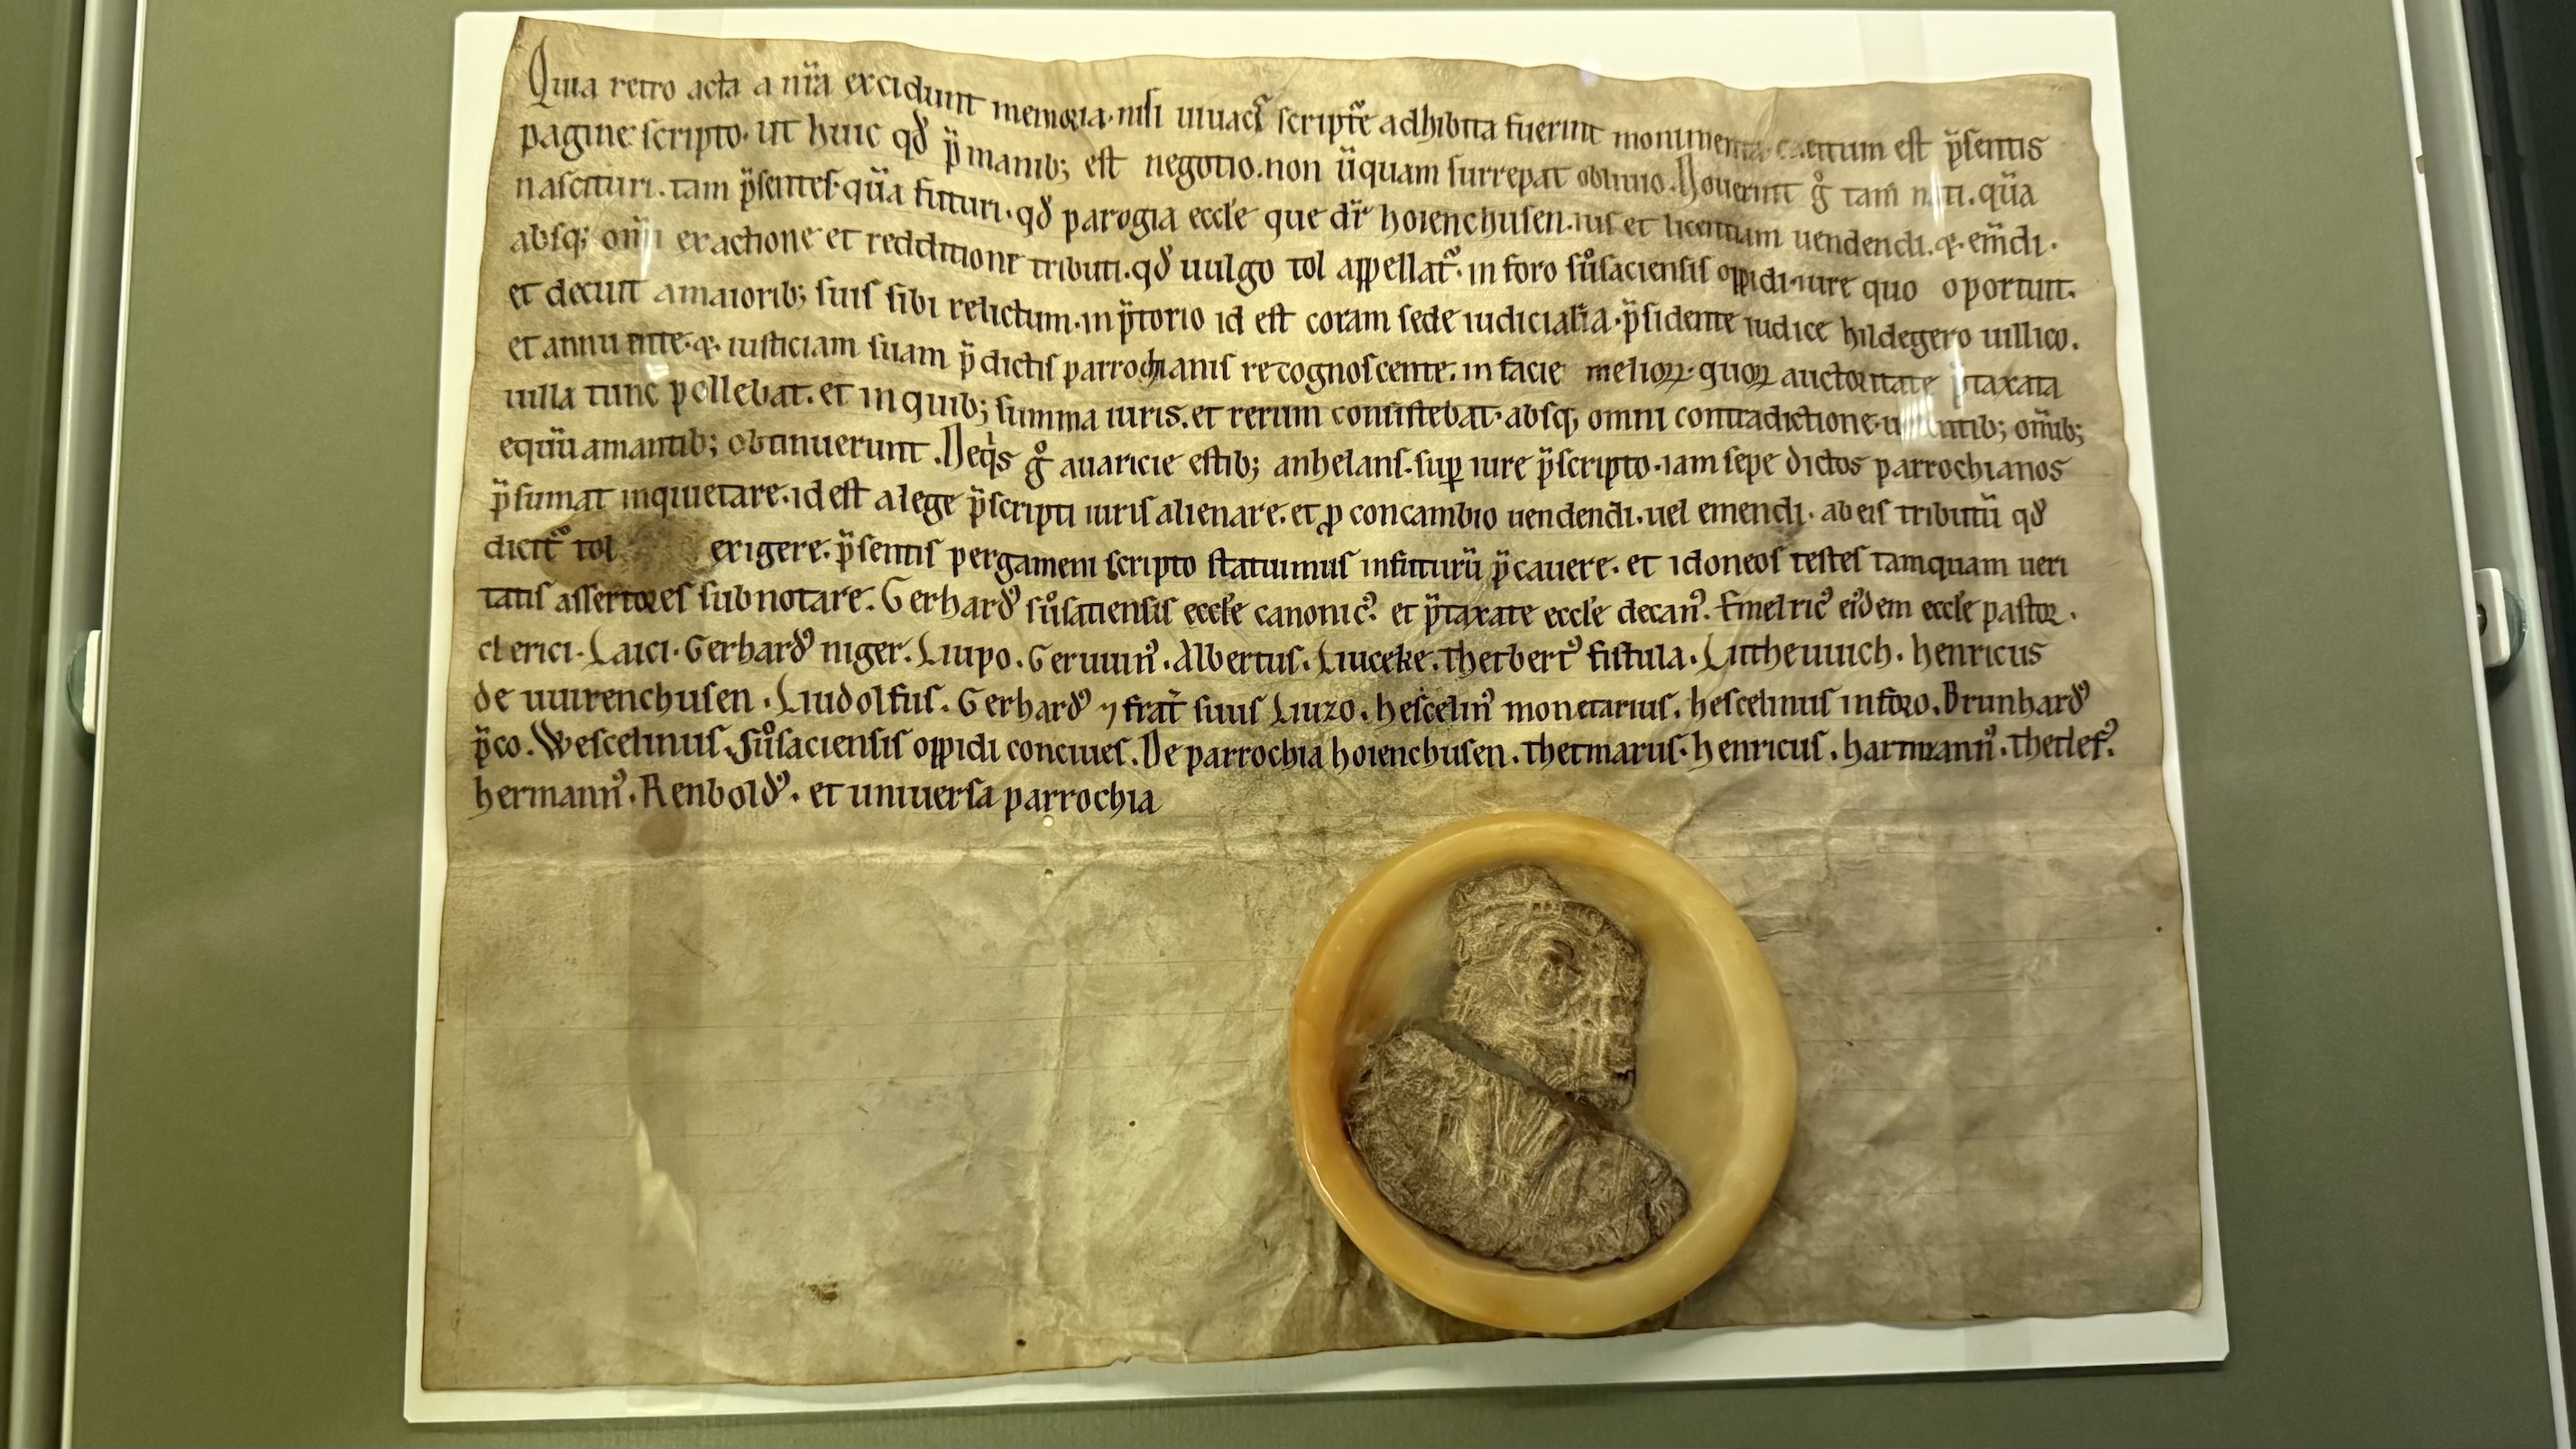 Quia retro acta a nr̄a excidunt memoria. nisi uiuaci scripte adhibita fuerint monimenta. cautum est p̄sentis
pagine scripto. ut huic qđ p̄ manib; est negotio. non ūquam surrepat obliuio. Nouerint g̊ tam nati. qūa
nascituri. tam p̄sentes. qūa futuri. qđ parogia eccl̄e que dr̄ hoienchusen. ius et licentiam uendendi. ⁊. em̄di.
absq; om̄i exactione et redditione tributi. qđ uulgo tol appellat᷑. in foro sůsaciensis oppidi. iure quo oportuit.
et decuit a maiorib; suis sibi relictum. in p̄torio id est coram sede iudiciaria. p̄sidente iudice hildegero uillico.
et annuente. ⁊. iusticiam suam p̄dictis parrochianis recognoscente. in facie melioꝝ. quoꝝ auctoritate p̄taxata
uilla tunc pollebat. et in quib; summa iuris. et rerum consistebat. absq; omni contradictione. om̄ib;
equū amantib; obtinuerunt. Neq̇s g̊ auaricie estib; anhelans. suꝑ iure p̄scripto. iam sepe dictos parrochianos
p̄sumat inquietare. id est a lege p̄scripti iuris alienare. et ꝓ concambio uendendi. uel emendi. ab eis tributū qđ
dicit᷑ tol exigere. p̄sentis pergameni scripto statuimus in futurū p̄cauere. et idoneos testes tamquam ueri
tatis assertores subnotare. Gerhardꝰ sůsatiensis eccl̄e canonicꝰ. et p̄taxate eccl̄e decanꝰ. Emelricꝰ eiꝰdem eccl̄e pastor.
clerici. Laici. Gerhardꝰ niger. Liupo. Geruuinꝰ. Albertus. Liuceke. Thetbertꝰ fistula. Littheuuich. henricus
de uuirenchusen. Liudolfus. Gerhardꝰ ⁊ frat̄ suus Liuzo. hescelinꝰ monetarius. hescelinus in foro. Brunhardꝰ
p̄co. Wescelinus. Sůsaciensis oppidi conciues. De parrochia hoienchusen. thetmarus. henricus. hartmannꝰ. thetlefꝰ.
hermannꝰ. Renboldꝰ. et uniuersa parrochia